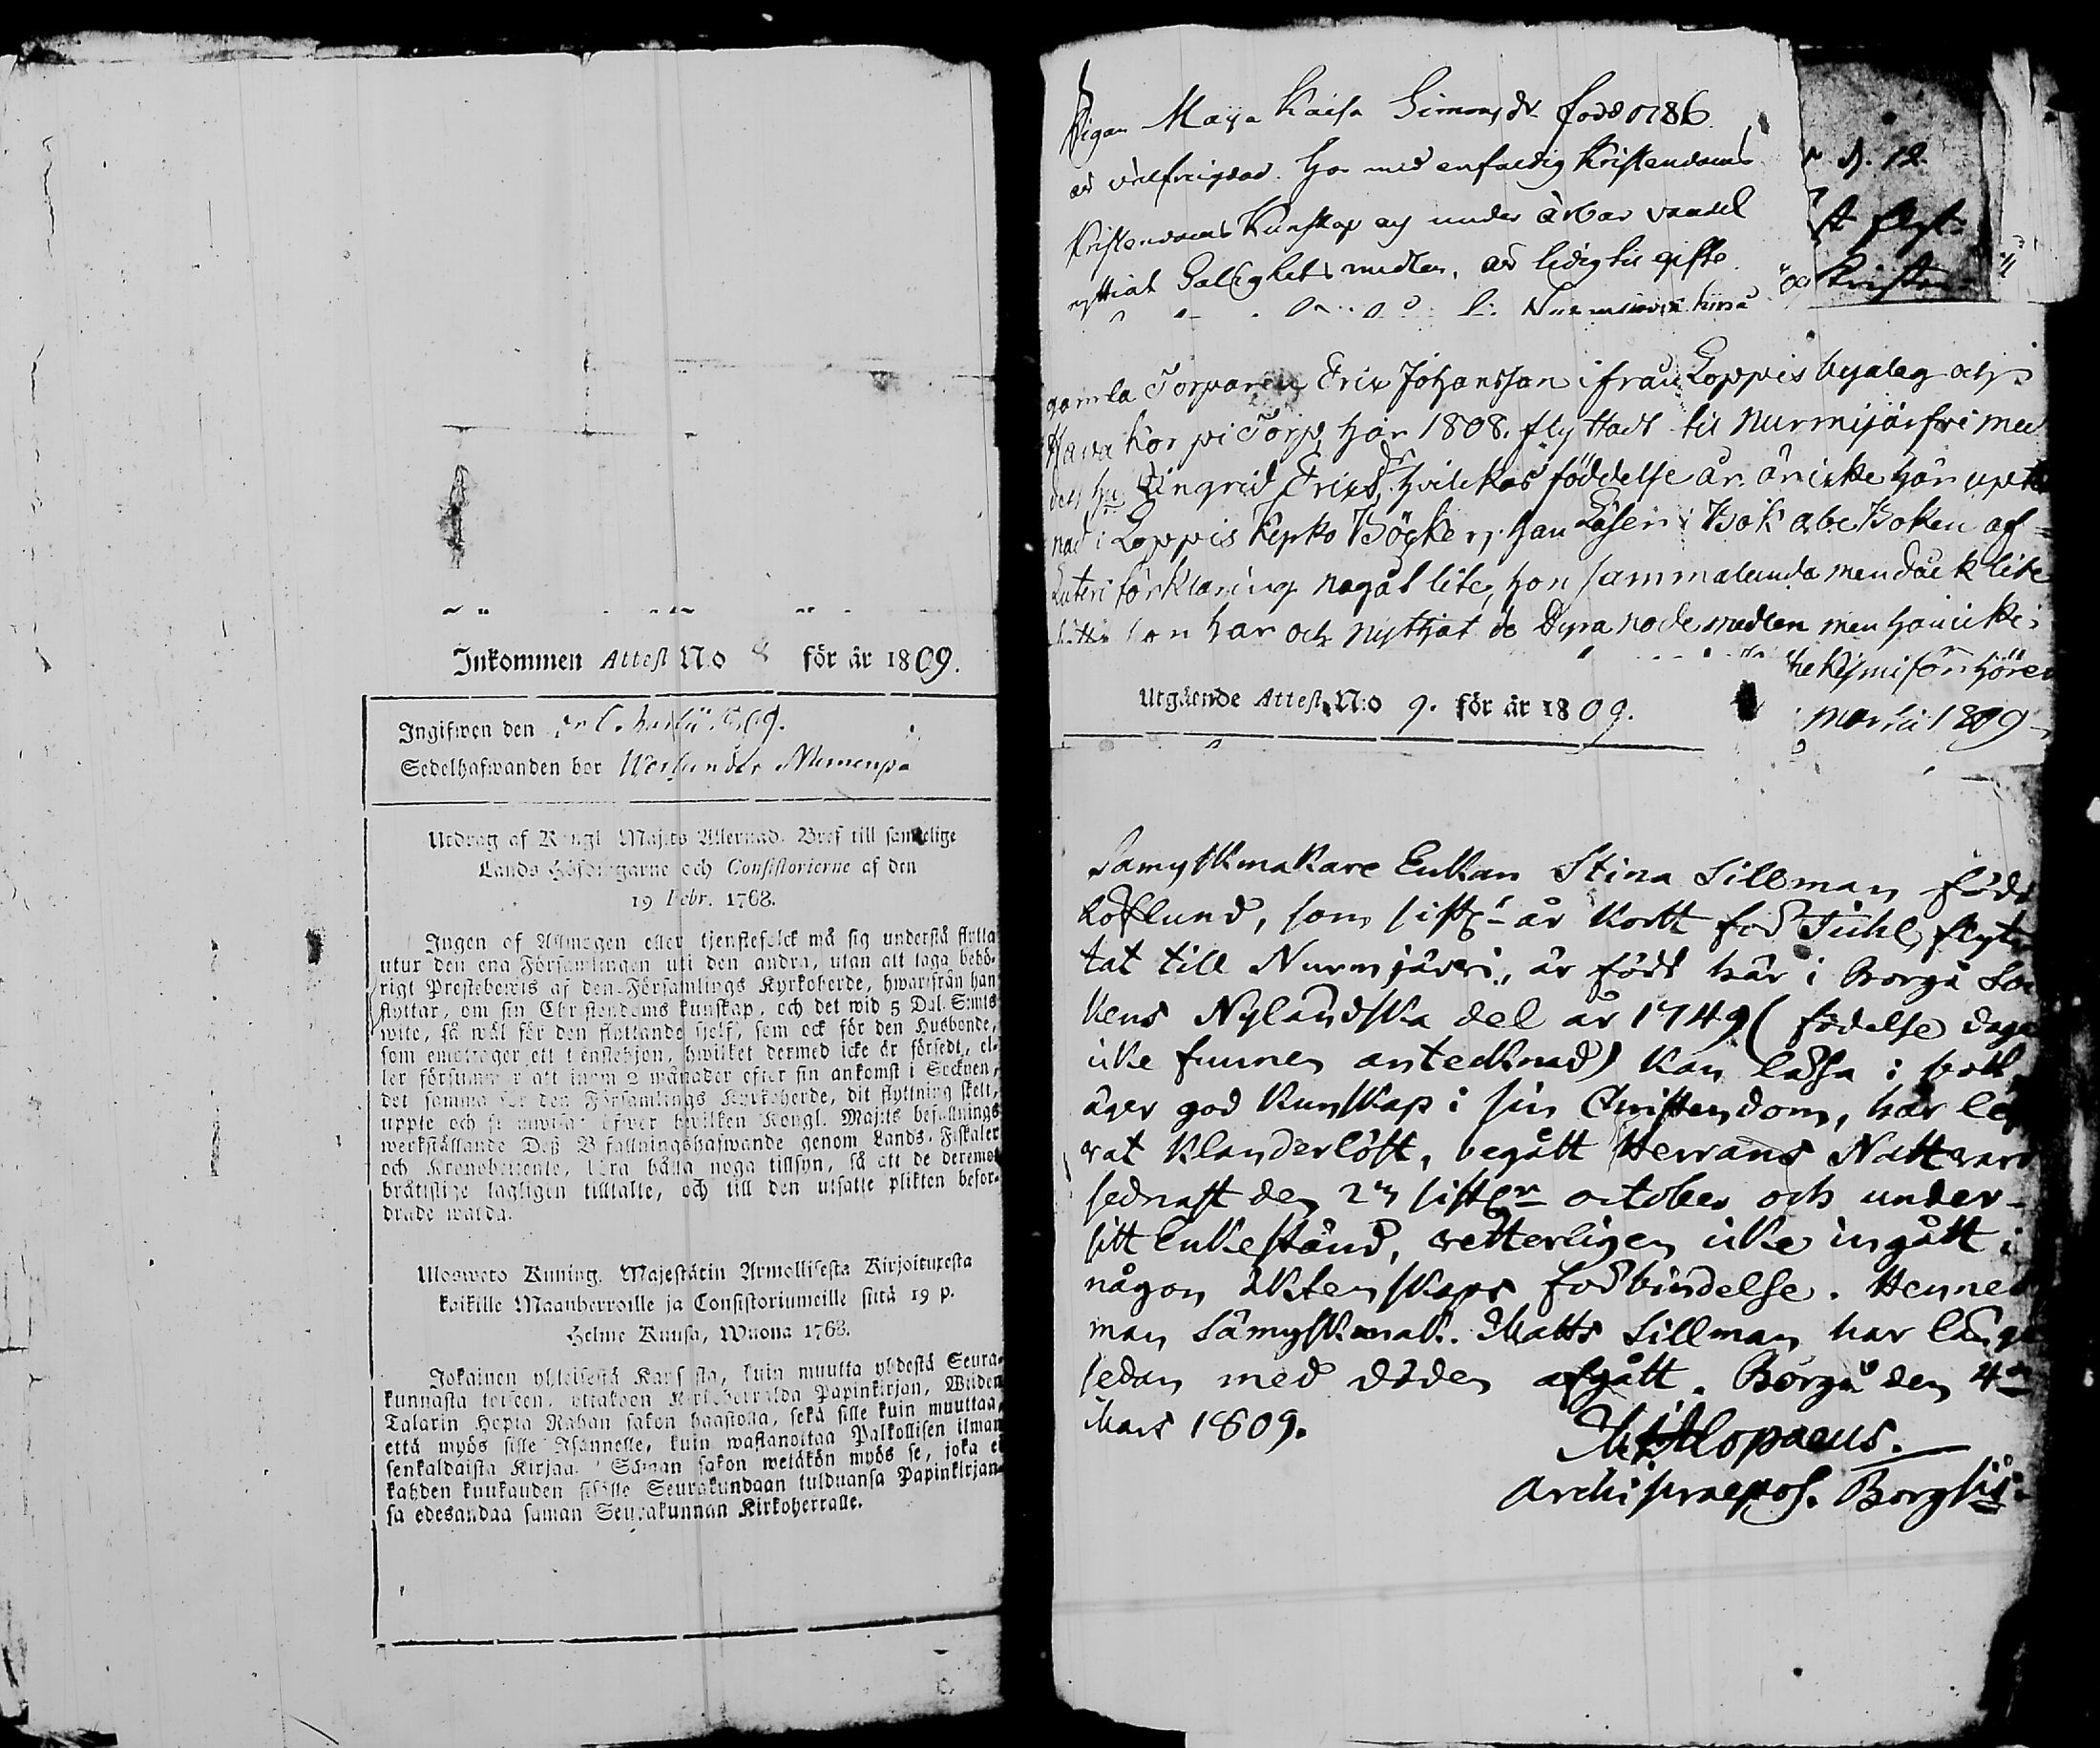 Inkommen Attest N:o 8 för år 1809.
Ingifwen den
Sedelhafwanden bor
Utdrag af Kongl Maj:ts Allernåd. Bref till samtelige
Lands Höfdingarne och Consistorierne af den
19 Febr. 1768.
Ingen af Allmogen eller tjenstefolck må sig understå flytta
utur den ena Församlingen uti den andra, utan att taga behö-
rigt Prestebewis af den Församlings Kyrkoherde, hwarifrån han
flyttar, om sin Christendoms kunskap, och det wid 5 Dal. S:mts
wite, så wäl för den flyttande sjelf, som ock för den Husbonde,
som emottager ett tjenstehjon, hwilket dermed icke är försedt, el-
ler försummar att inom 2 månader efter sin ankomst i Socknen,
det samma för den Församlings Kyrkoherde, dit flyttning skett,
uppte och öfwer hwilken Kongl. Maj:ts befallnings
werkställande Deß Befallningshafwande genom Lands-Fiskaler
och Kronobetjente, lära hålla noga tillsyn, så att de deremot
bråtslige lagligen tilltalte, och till den utsatte plikten befor-
drade warda.
Ulosweto Kuning. Majestätin Armollisesta Kirjoituxesta
kaikille Maanherroille ja Consistoriumeille siitä 19 p.
Helme Kuusa, Wuona 1768.
Jokainen yhteisestä Kansasta, kuin muutta yhdestä Seura-
kunnasta toiseen, ottakoon Kirkoherralda Papinkirjan, Wiiden
Talarin Hopia Rahan sakon haastolla, sekä sille kuin muuttaa,
että myös sille Isännelle, kuin wastanottaa Palkollisen ilman
senkaldaista Kirjaa. Saman sakon wetäkön myös se, joka ei
kahden kuukauden sisälle Seurakundaan tulduansa Papinkirjan-
sa edesandaa saman Seurakunnan Kirkoherralle.
Pigan Maija Kaisa Simonsdr född 1786
är välfrägdad. har med enfaldig Kristendoms
Kristendoms Kunskap och under ärbar vandel
nyttjat Salighetsmedlen, är ledig til gifte
r d. 12.
st flyt-
Kristen-
gamla Torparen Eric Johansson ifrån Loppis byalag och
Torp här 1808. flyttadt til Nurmijärfvi med
Ingrid Ericsdr hvilckas föddelse år är icke här upteck
nad i Loppis Kyrko Böcker, han Läser i Bok abc Boken af
Luteri förklaring något lite, hon sammalunda men däck lite
har och nyttjat de Dyra nåde medlen men han icke i
Utgående Attest N:o 9. för år 1809.
martii 1809
Sämyskmakare Enkan Stina Sillman född
Löflund, som sistl. år kort för Juhl, flyt-
tat till Nurmjärvi, är född här i Borgå Soc
kens Nylandska del år 1749 (födelse dagen
icke funnen antecknad) kan läsa i bok,
äger god kunskap i sin Christendom, har lef
vat klanderlöst, begått Herrans Nattvard
sednast den 2n sistl. october och under
sitt Enkestånd, vetterligen icke ingått i
någon äktenskaps förbindelse. Hennes
man Sämyskmak. Matts Sillman har länge
sedan med döden afgått. Borgå den 4n
Mars 1809.
M. Alopaeus.
Archipraepos. Borgsis.